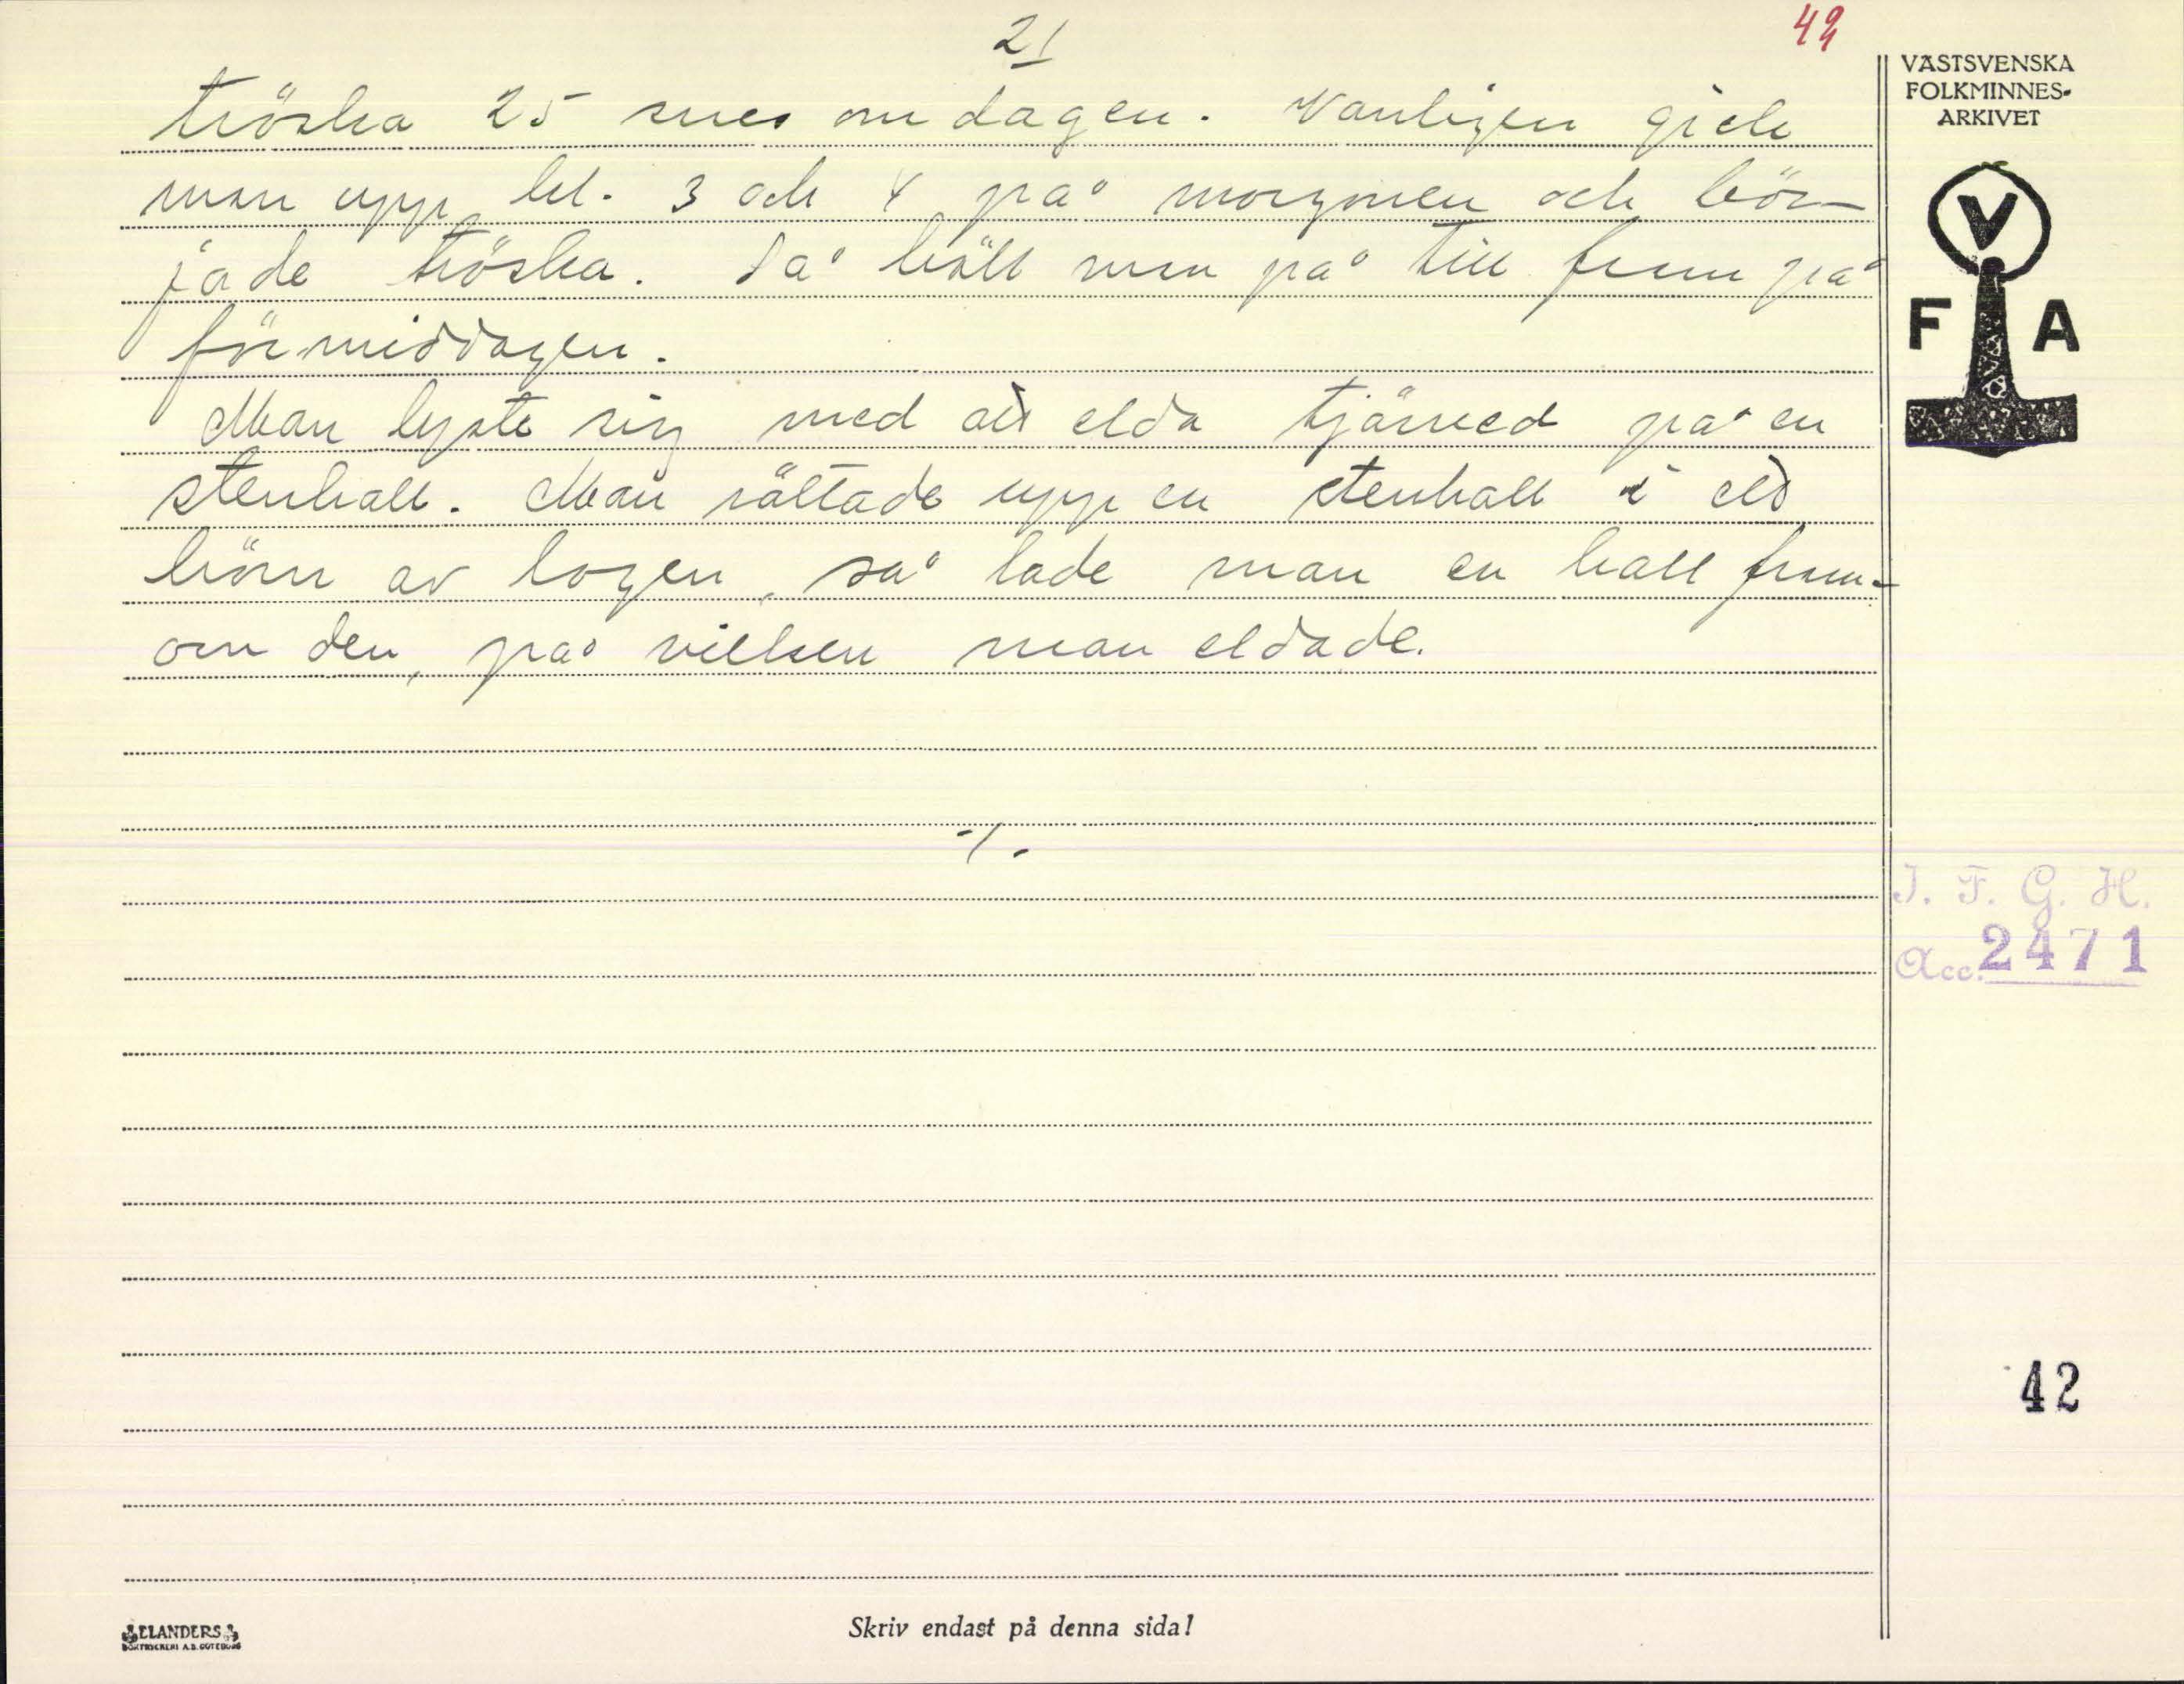 21
42
tröska 25 snes om dagen. Vanligen gick
man upp kl. 3 och 4 på morgonen och bör-
jade tröska. Så höll man på till fram på
förmiddagen.
Man lyste sig med att elda tjärved på en
stenhall. Man rättade upp en stenhall i ett
hörn av logen, så lade man en hall fram-
om den, på vilken man eldade.
-/-
VÄSTSVENSKA
FOLKMINNES-
ARKIVET
V
F A
I. F. G. H.
Acc. 2471
42
ELANDERS
BOKTRYCKERI A.B. GÖTEBORG
Skriv endast på denna sida!